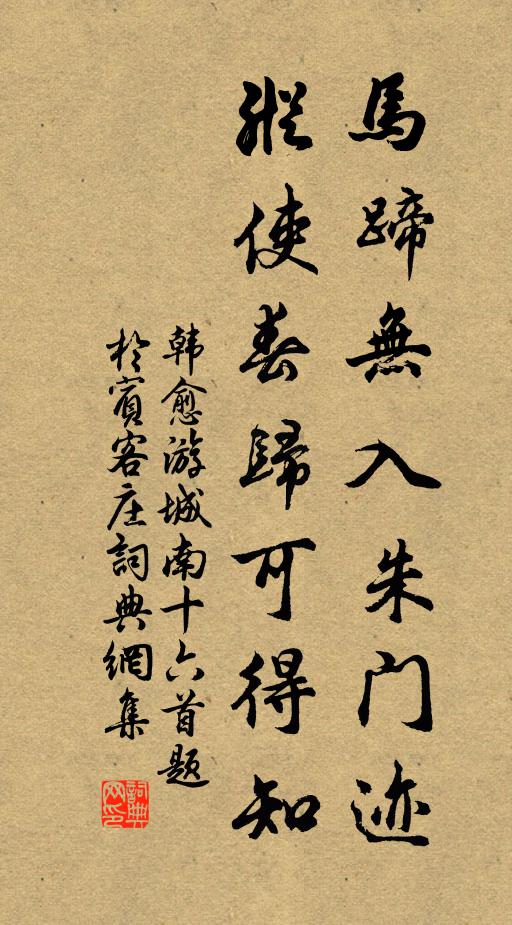 馬蹄無入朱门迹
縱使春歸可得知
韩愈游城南十六首题
於賓客庄詞典網集
詞典网印